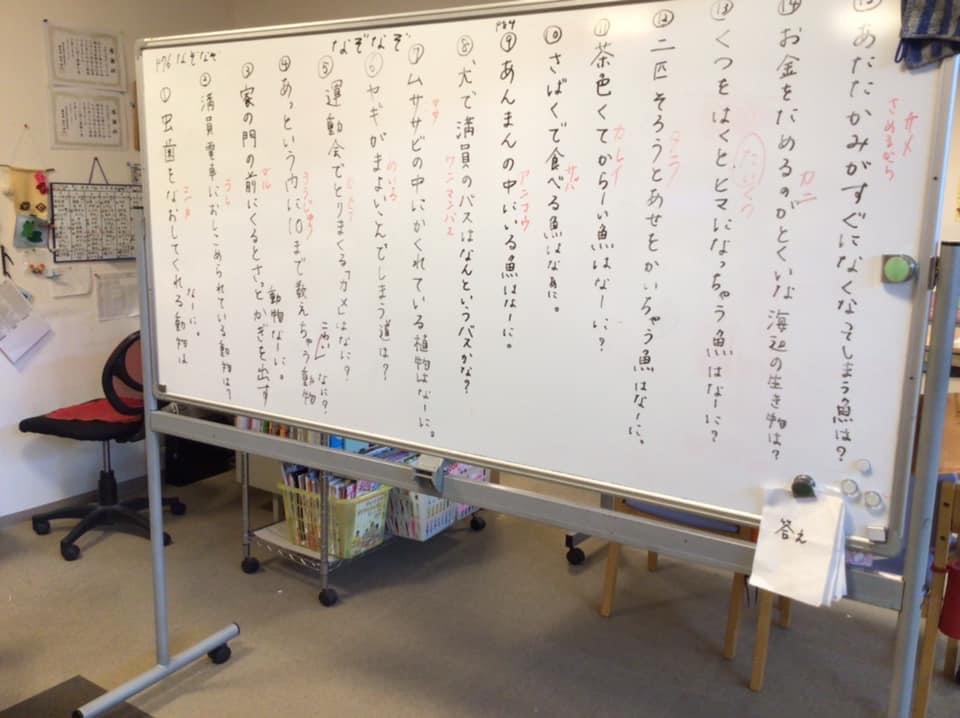 P76 なぞなぞ
なぞなぞ
①虫歯をなおしてくれる動物は
なーに。
シカ
②満員電車におしこめられている動物は?
うし
③家の門の前にくるとさっとかぎを出す
動物なーに。
サル
④あっという内に10まで数えちゃう動物
なに?
⑤運動会でとりまくる「カメ」はなに?
⑥ヤギがまよいこんでしまう道は?
めいろ
⑦ムササビの中にかくれている植物はなーに。
ササ
⑧犬で満員のバスはなんというバスかな?
ワンマンバス
P84
⑨あんまんの中にいる魚はなーに。
アンコウ
⑩さばくで食べる魚はなあに。
サバ
⑪茶色くてからーい魚はなーに?
カレイ
⑫二匹そろうとあせをかいちゃう魚はなーに。
タラ
⑬くつをはくとヒマになっちゃう魚はなーに?
たいくつ
⑭お金をためるのがとくいな海辺の生き物は?
カニ
⑮あたたかみがすぐになくなってしまう魚は?
サメ
さめるから
答え